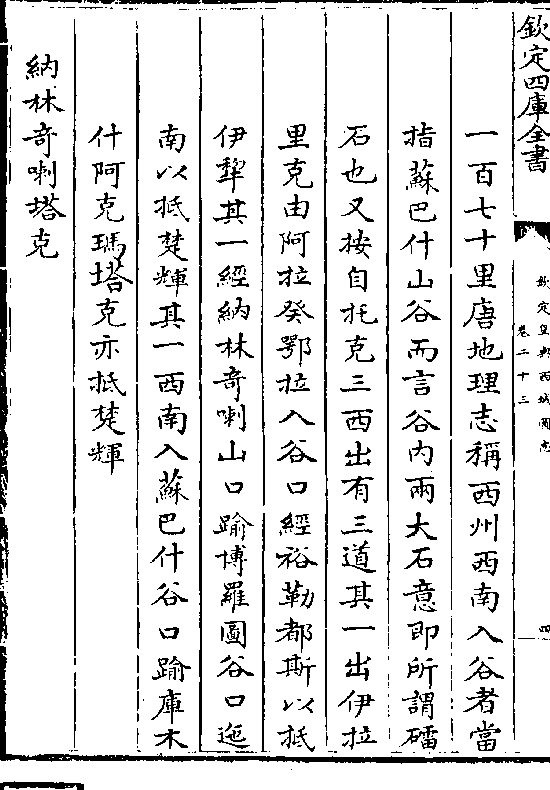 欽定四庫全書
欽定皇輿西域圖志
卷二十三
四
一百七十里唐地理志稱西州西南入谷者當
指蘇巴什山谷而言谷内兩大石意即所謂礌
石也又按自托克三西出有三道其一出伊拉
里克由阿拉癸鄂拉入谷口經裕勒都斯以抵
伊犂其一經納林竒喇山口踰博羅圖谷口迤
南以抵楚輝其一西南入蘇巴什谷口踰庫木
什阿克瑪塔克亦抵楚輝
納林竒喇塔克